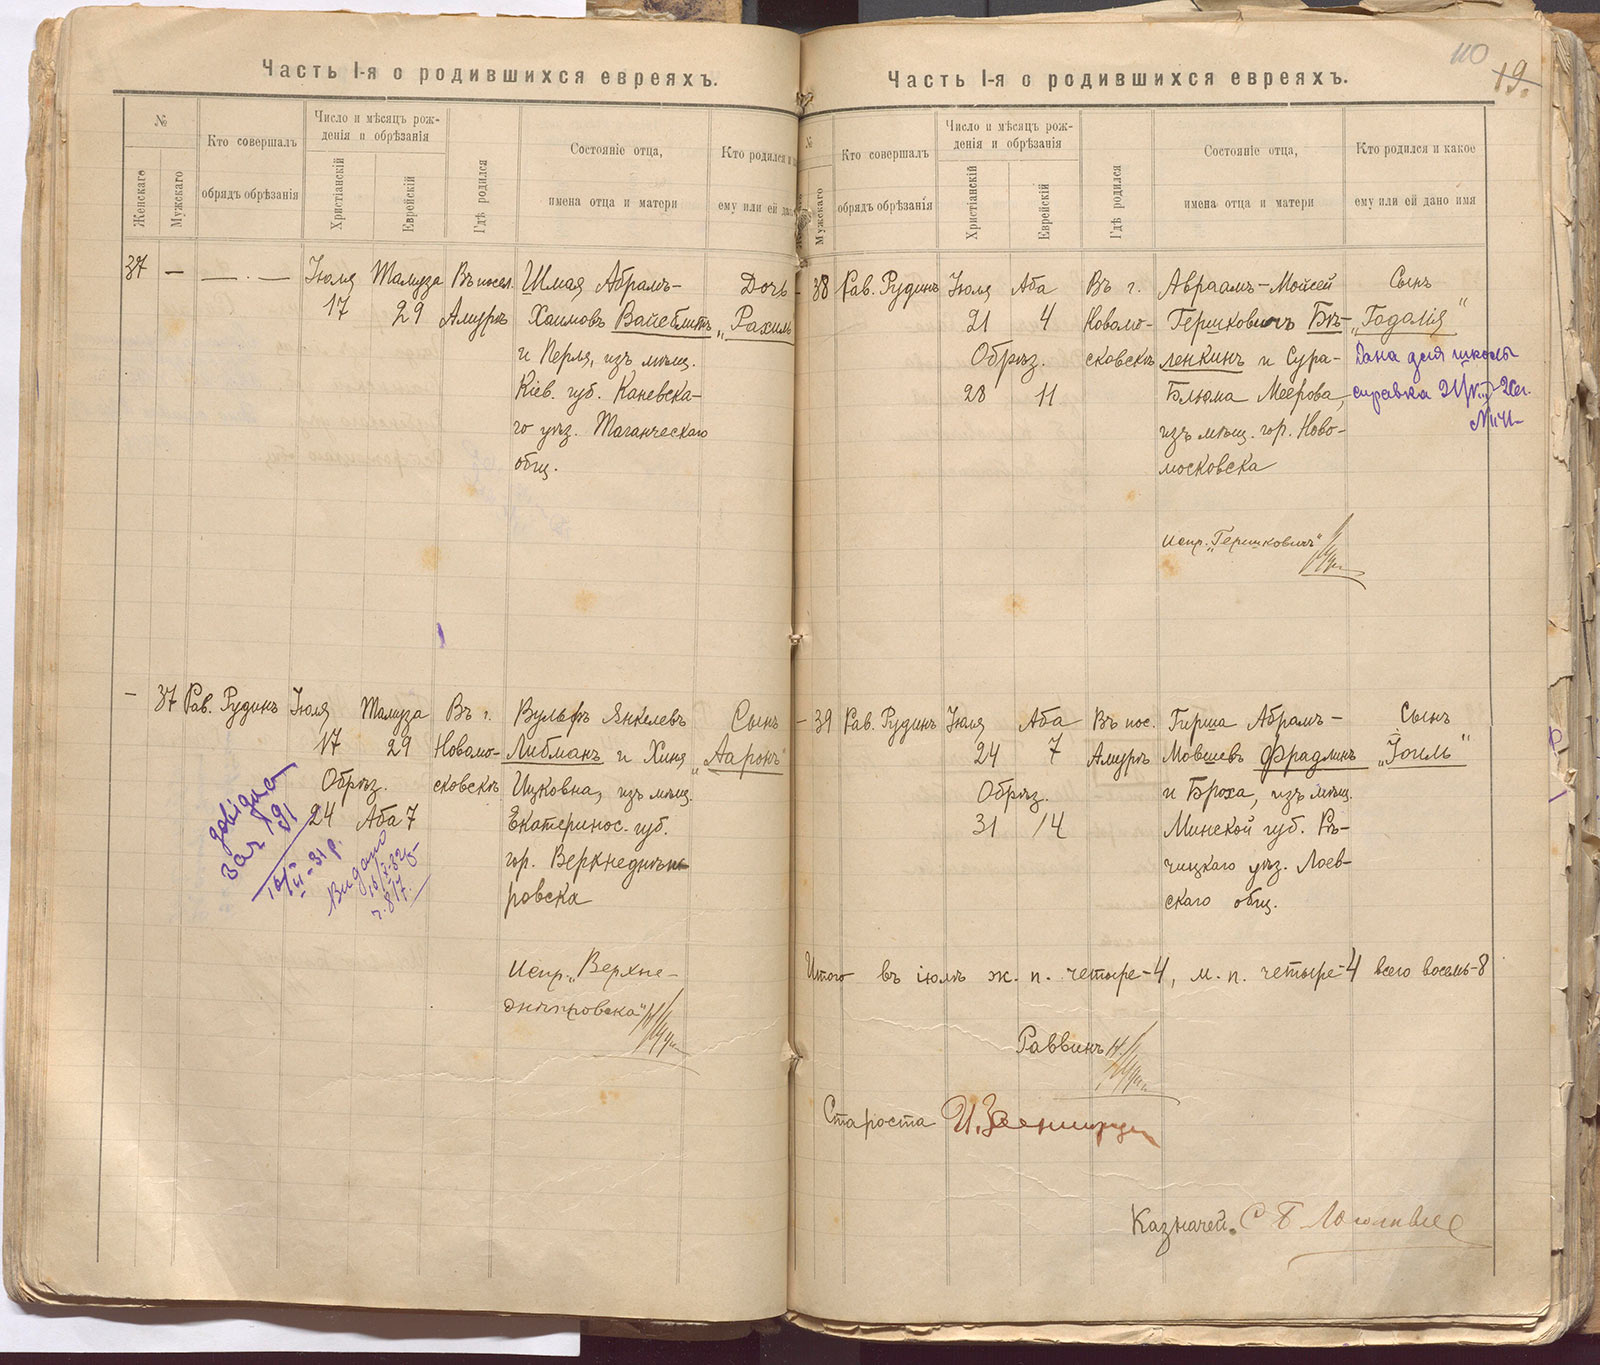 Часть I-я о родившихся евреяхъ.
№
Женскаго
Мужскаго
Кто совершалъ
обрядъ обрѣзанія
Число и мѣсяцъ рож-
денія и обрѣзанія
Христіанскій
Еврейскій
Гдѣ родился
Состояніе отца,
имена отца и матери
Кто родился и
ему или ей да
37 — — . — Іюля Тамуза Въ посел. Шмая Абрамъ- Дочь
17 29 Амурѣ Хаимовъ Вайсблитъ „Рахиль
и Перля, изъ мѣщ.
Кіев. губ. Каневска-
го уѣз. Таганческаго
общ.
— 37 Рав. Рудинъ Іюля Тамуза Въ г. Вульфъ Янкелевъ Сынъ
17 29 Новомо- Либманъ и Хиня „Ааронъ“
Обрѣз. сковскѣ Ицковна, изъ мѣщ.
24 Аба 7 Екатеринос. губ.
гор. Верхнеднѣп-
ровска
Испр. „Верхне-
днѣпровска“
довідка
за ч 191
10/II-31 р.
Видано
ч. 817.
110
19.
Часть I-я о родившихся евреяхъ.
№
Мужскаго
Кто совершалъ
обрядъ обрѣзанія
Число и мѣсяцъ рож-
денія и обрѣзанія
Христіанскій
Еврейскій
Гдѣ родился
Состояніе отца,
имена отца и матери
Кто родился и какое
ему или ей дано имя
— 38 Рав. Рудинъ Іюля Аба Въ г. Авраамъ-Мойсей Сынъ
21 4 Новомо- Гершковичъ Бѣ- „Годалія“
Обрѣз. сковскѣ ленкинъ и Сура- Дана для школы
28 11 Блюма Меерова, справка
изъ мѣщ. гор. Ново-
московска
Испр. „Гершковичъ“
— 39 Рав. Рудинъ Іюля Аба Въ пос. Гирша Абрамъ- Сынъ
24 7 Амурѣ Мовшевъ Фрадлинъ „Іоиль“
Обрѣз. и Броха, изъ мѣщ.
31 14 Минской губ. Рѣ-
чицкаго уѣз. Лоев-
скаго общ.
Итого въ іюлѣ ж. п. четыре-4, м. п. четыре-4 всего восемь-8
Раввинъ
Староста
Казначей